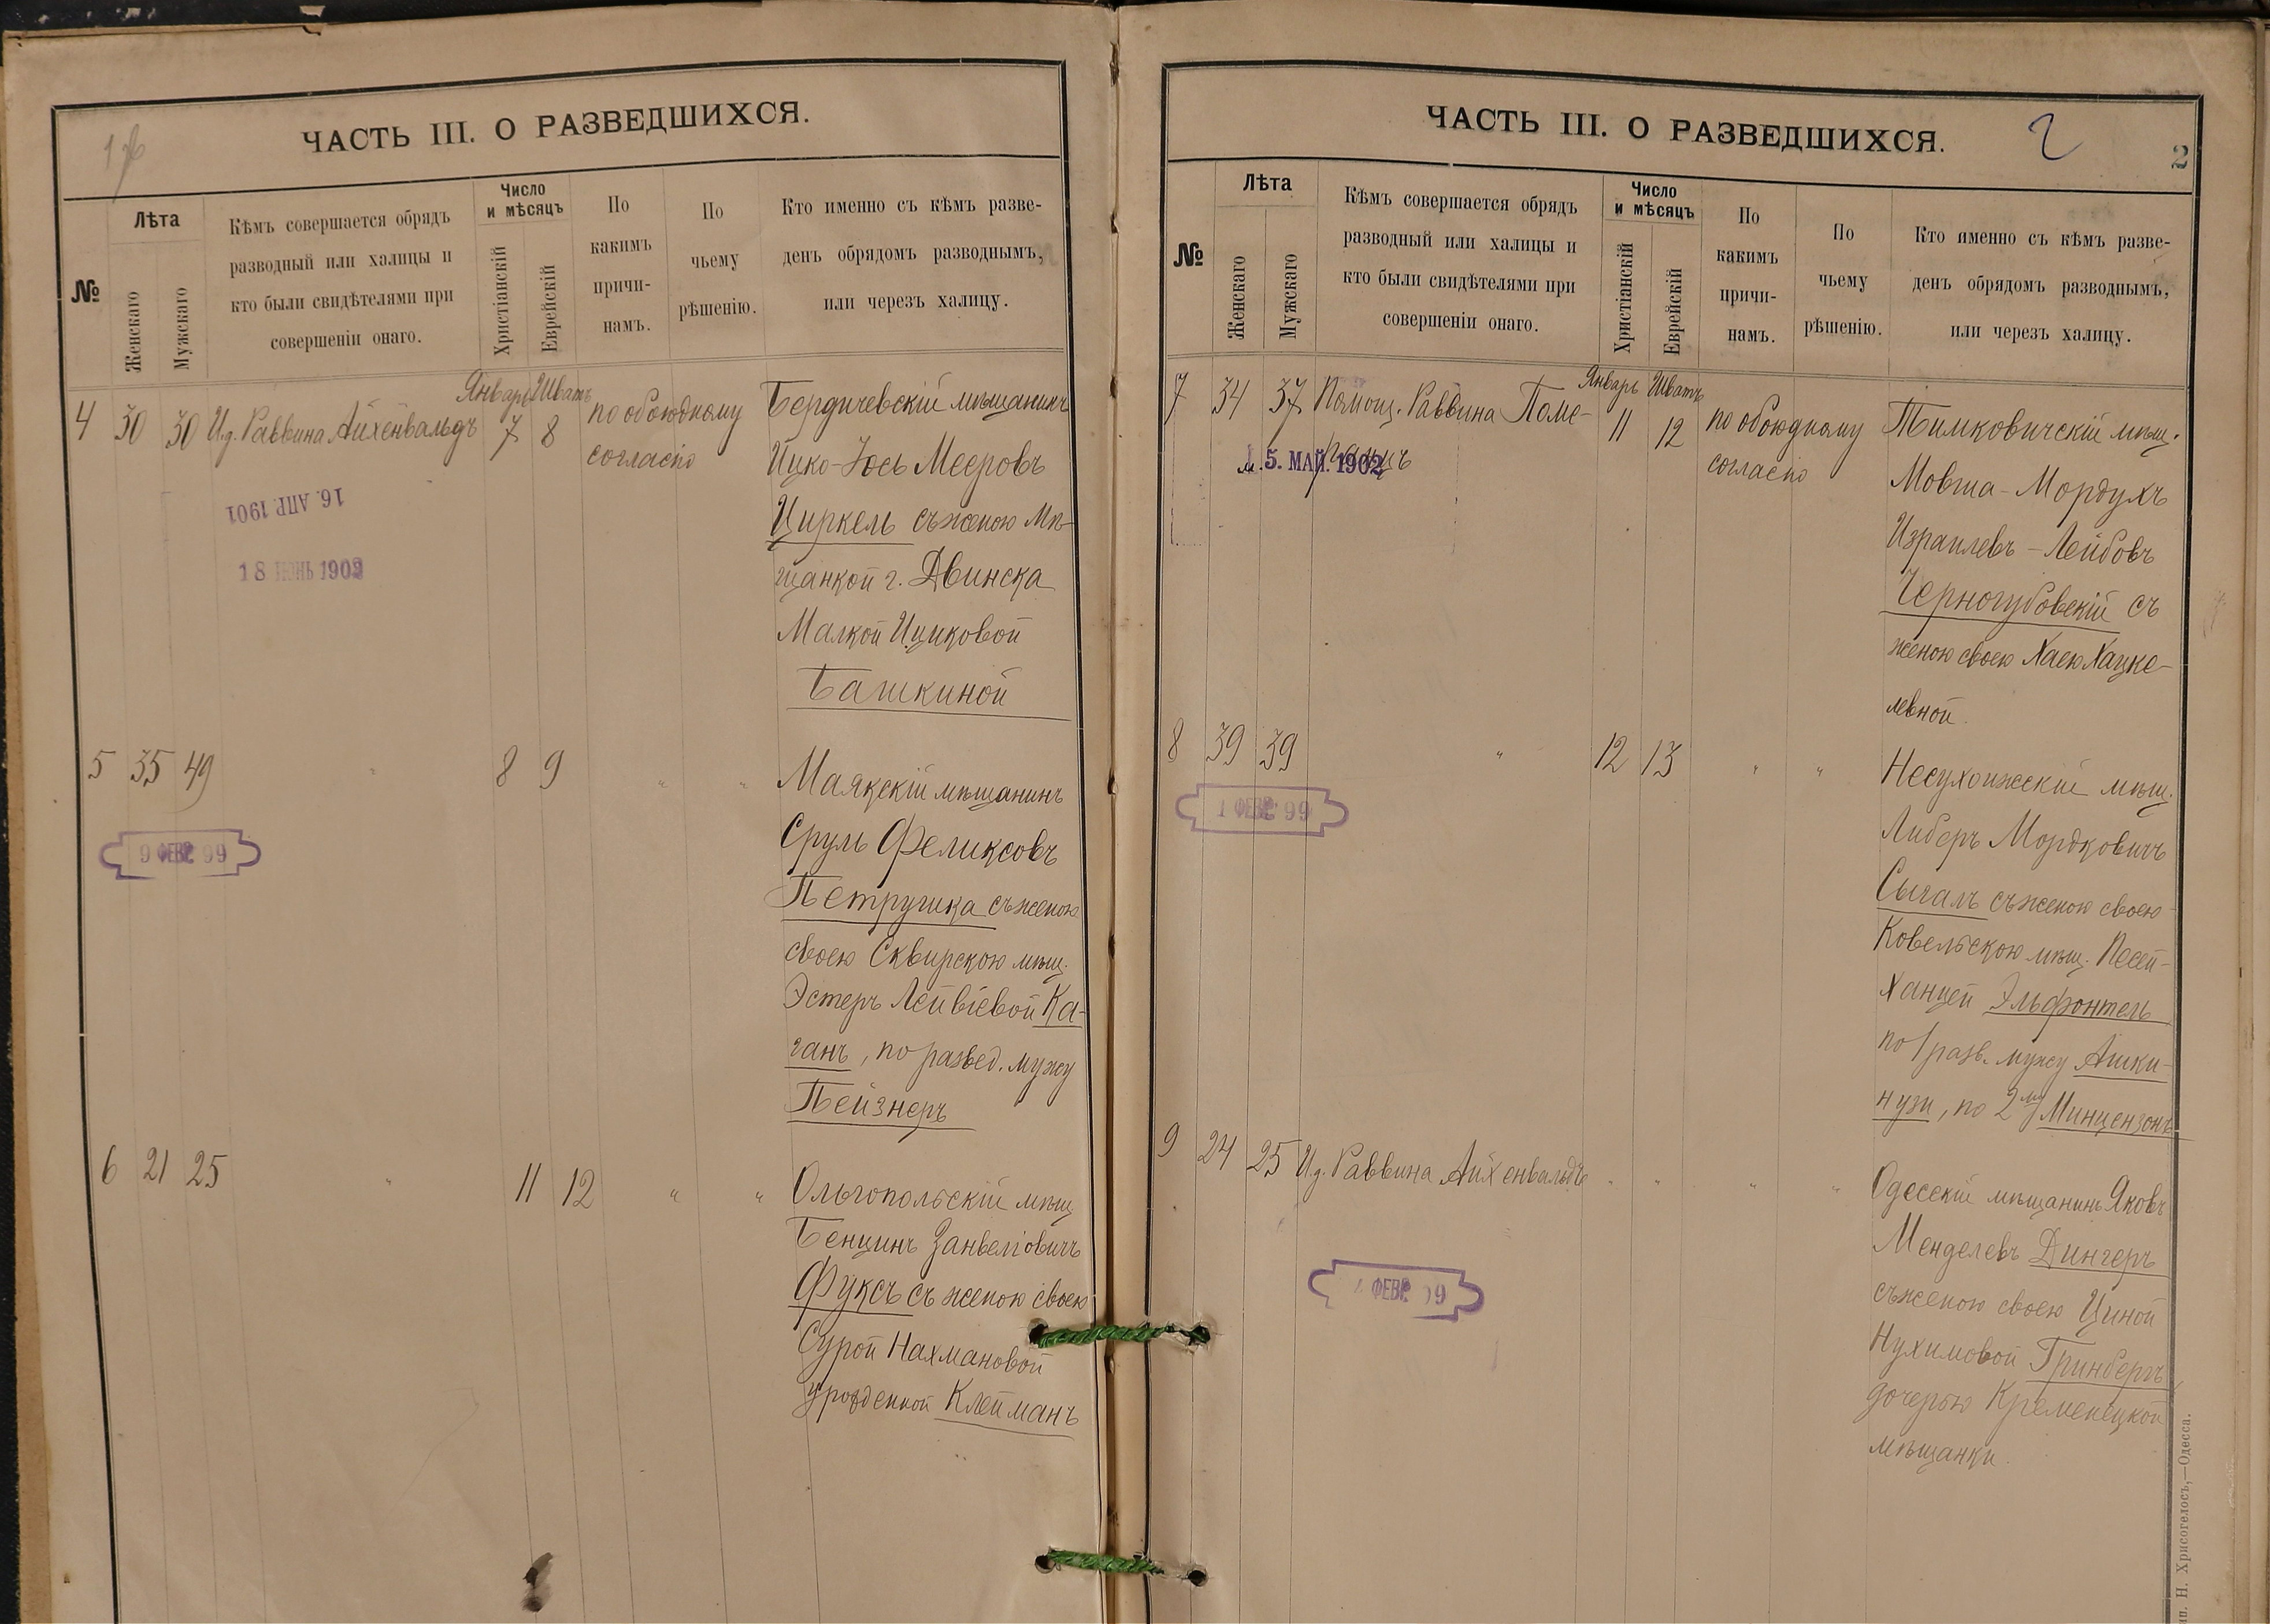 ЧАСТЬ III. О РАЗВЕДШИХСЯ.
№
Лѣта
Женскаго
Мужскаго
Кѣмъ совершается обрядъ
разводный или халицы и
кто были свидѣтелями при
совершеніи онаго.
Число
и мѣсяцъ
Христіанскій
Еврейскій
По
какимъ
причи-
намъ.
По
чьему
рѣшенію.
Кто именно съ кѣмъ разве-
денъ обрядомъ разводнымъ,
или черезъ халицу.
4 30 30 И.д. Раввина Айхенвальдъ
Январь Шватъ
7 8
по обоюдному
согласію
16. АПР. 1901
18 ІЮНЬ 1902
Бердичевскій мѣщанинъ
Ицко-Іось Мееровъ
Циркель съ женою Мѣ-
щанкой г. Двинска
Малкой Ицковой
Башкиной
5 35 49 " 8 9 " "
9 ФЕВР. 99
Маякскій мѣщанинъ
Сруль Феликсовъ
Петрушка съ женою
своею Сквирскою мѣщ.
Эстеръ Лейвіевой Ка-
ганъ, по развед. мужу
Пейзнеръ
6 21 25 " 11 12 " "
Ольгопольскій мѣщ.
Бенцинъ Занвеліовичъ
Фуксъ съ женою своею
Сурой Нахмановой
урожденной Клейманъ
ЧАСТЬ III. О РАЗВЕДШИХСЯ.
2
2
№
Лѣта
Женскаго
Мужскаго
Кѣмъ совершается обрядъ
разводный или халицы и
кто были свидѣтелями при
совершеніи онаго.
Число
и мѣсяцъ
Христіанскій
Еврейскій
По
какимъ
причи-
намъ.
По
чьему
рѣшенію.
Кто именно съ кѣмъ разве-
денъ обрядомъ разводнымъ,
или черезъ халицу.
7 34 37 Помощ. Раввина Поме-
ранцъ
5. МАЙ. 1902
Январь Шватъ
11 12
по обоюдному
согласію
Тимковичскій мѣщ.
Мовша-Мордухъ
Израилевъ-Лейбовъ
Черногубовскій съ
женою своею Хаею Хацке-
левной.
8 39 39 " 12 13 " "
1 ФЕВР. 99
Несухоижскій мѣщ.
Либеръ Мордковичъ
Сыгалъ съ женою своею
Ковельскою мѣщ. Песей-
Ханцей Эльфонтель
по 1 разв. мужу Ашки-
нузи, по 2му Минцензонъ
9 24 25 И.д. Раввина Айхенвальдъ " " " "
ФЕВР.
Одесскій мѣщанинъ Яковъ
Менделевъ Дингеръ
съ женою своею Циной
Нухимовой Гринбергъ,
дочерью Кременецкой
мѣщанки.
Н. Хрисогелосъ,—Одесса.